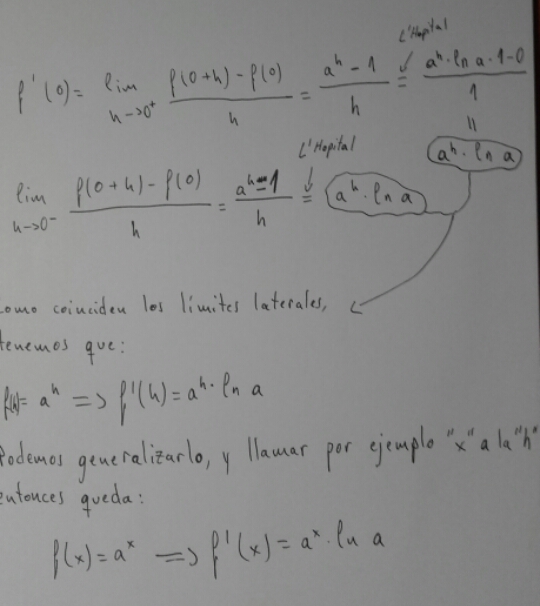 L'Hopital
f'(0) = lim h→0⁺ (f(0+h) - f(0))/h = (aʰ - 1)/h = (aʰ · ln a · 1-0)/1
L'Hopital = aʰ · ln a
lim h→0⁻ (f(0+h) - f(0))/h = (aʰ - 1)/h = aʰ · ln a
Como coinciden los límites laterales,
tenemos que:
f(h) = aʰ => f'(h) = aʰ · ln a
Podemos generalizarlo, y llamar por ejemplo "x" a la "h"
entonces queda:
f(x) = aˣ => f'(x) = aˣ · ln a